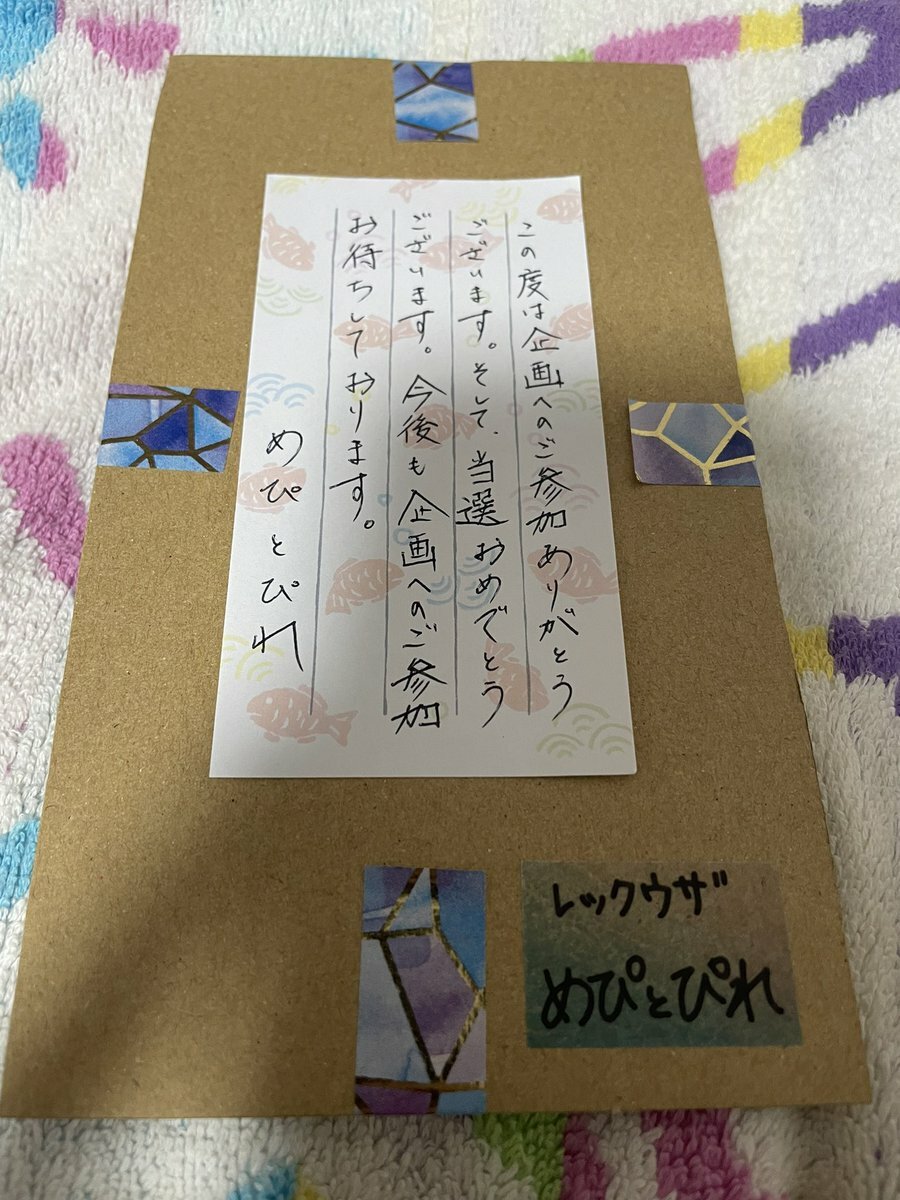 この度は企画へのご参加ありがとう
ございます。そして、当選おめでとう
ございます。今後も企画へのご参加
お待ちしております。
めぴとぴれ
レックウザ
めぴとぴれ